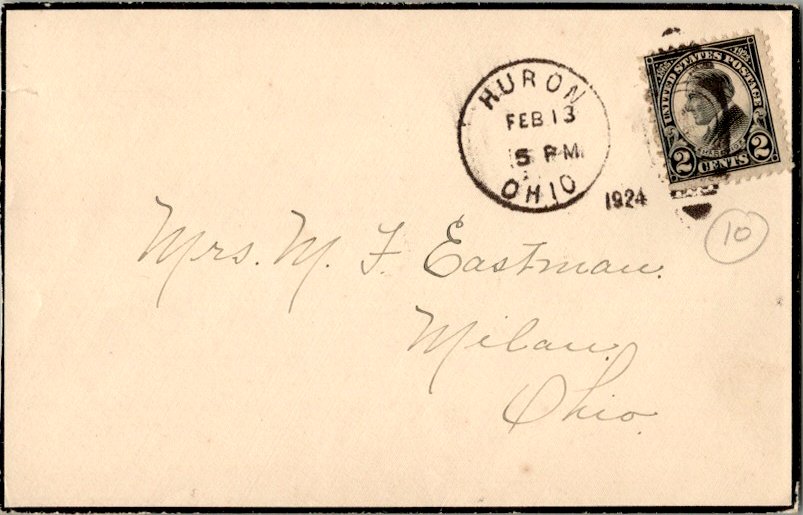 HURON
FEB 13
5 PM
OHIO
1924
1865 1923
UNITED STATES POSTAGE
HARDING
2 CENTS 2
10
Mrs. M. F. Eastman.
Milan.
Ohio.